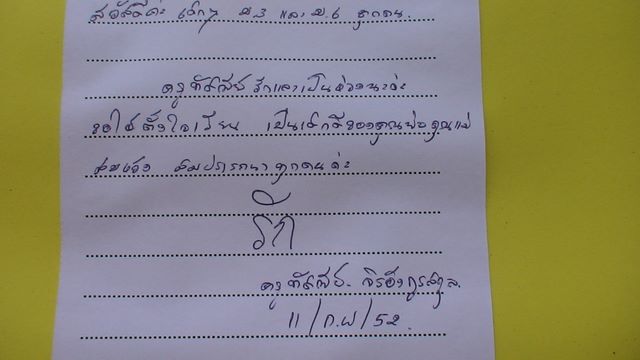 สวัสดีค่ะ เด็กๆ ม.3 และ ม.6 ทุกคน.
ครูทัศนีย์ รักและเป็นห่วงนะคะ
ขอให้ตั้งใจเรียน เป็นเด็กดีของคุณพ่อคุณแม่
สมหวัง สมปรารถนาทุกคนค่ะ
รัก
ครูทัศนีย์
11/ก.พ/52.